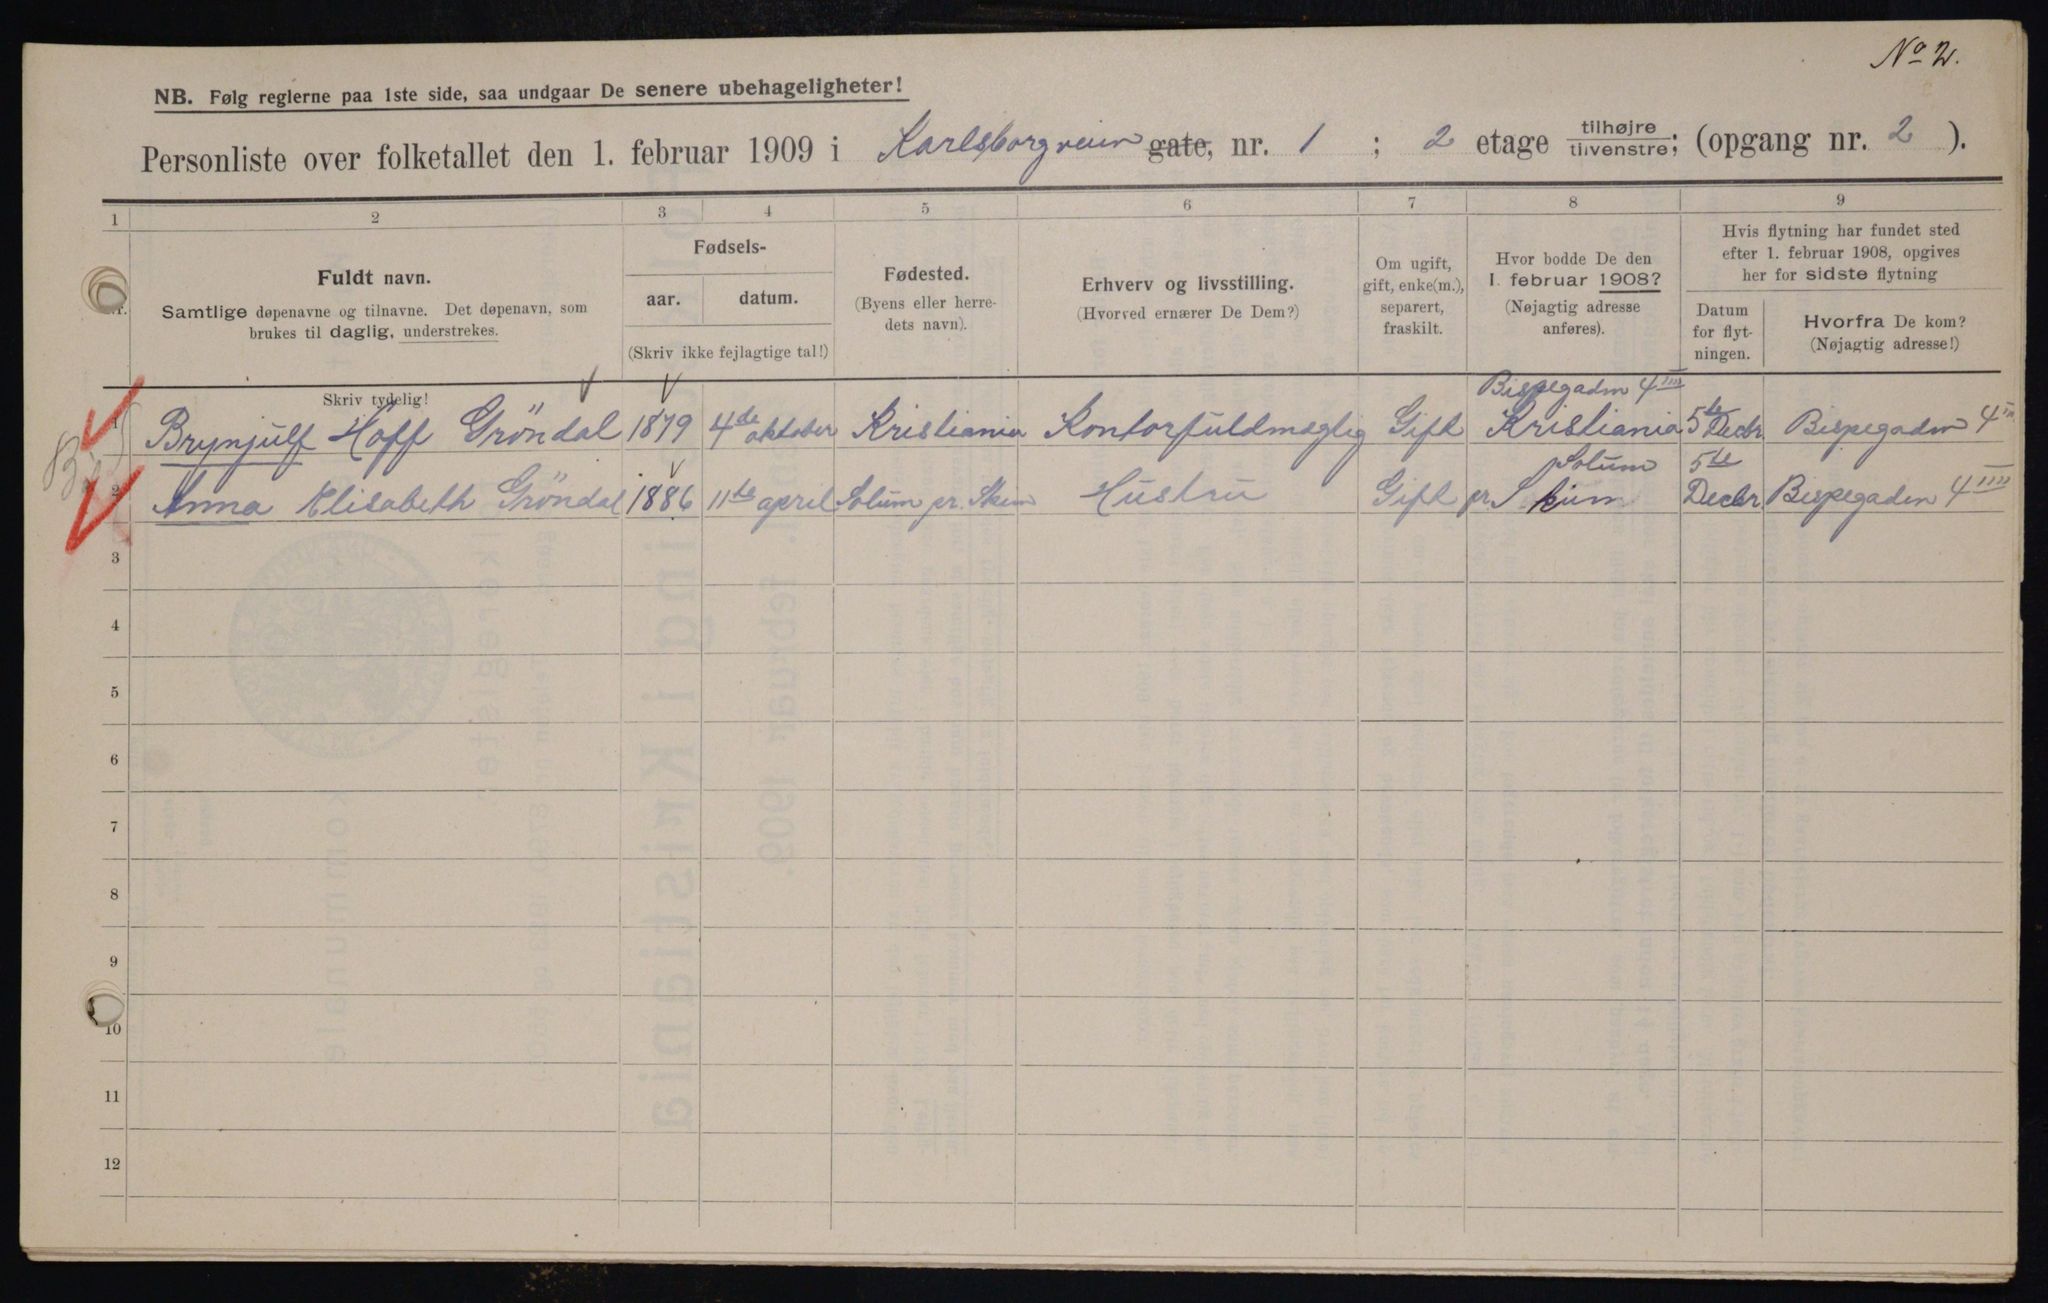 No 2.
NB. Følg reglerne paa 1ste side, saa undgaar De senere ubehageligheter!
Personliste over folketallet den 1. februar 1909 i Karlsborgveien gate, nr. 1 ; 2 etage tilhøjre tilvenstre; (opgang nr. 2 ).
1 2 3 4 5 6 7 8 9
Fuldt navn.
Samtlige døpenavne og tilnavne. Det døpenavn, som
brukes til daglig, understrekes.
Skriv tydelig!
Fødsels-
aar. datum.
(Skriv ikke fejlagtige tal!)
Fødested.
(Byens eller herre-
dets navn).
Erhverv og livsstilling.
(Hvorved ernærer De Dem?)
Om ugift,
gift, enke(m.),
separert,
fraskilt.
Hvor bodde De den
1. februar 1908?
(Nøjagtig adresse
anføres).
Hvis flytning har fundet sted
efter 1. februar 1908, opgives
her for sidste flytning
Datum
for flyt-
ningen.
Hvorfra De kom?
(Nøjagtig adresse!)
Bispegaden 4 IIII
1 Brynjulf Hoff Gröndal 1879 4de oktober Kristiania Kontorfuldmægtig Gift Kristiania 5te Decbr Bispegaden 4
Solum
2 Anna Elisabeth Gröndal 1886 11te april Solum pr. Skien Hustru Gift pr. Skien 5te Decbr. Bispegaden 4 IIII
3
4
5
6
7
8
9
10
11
12